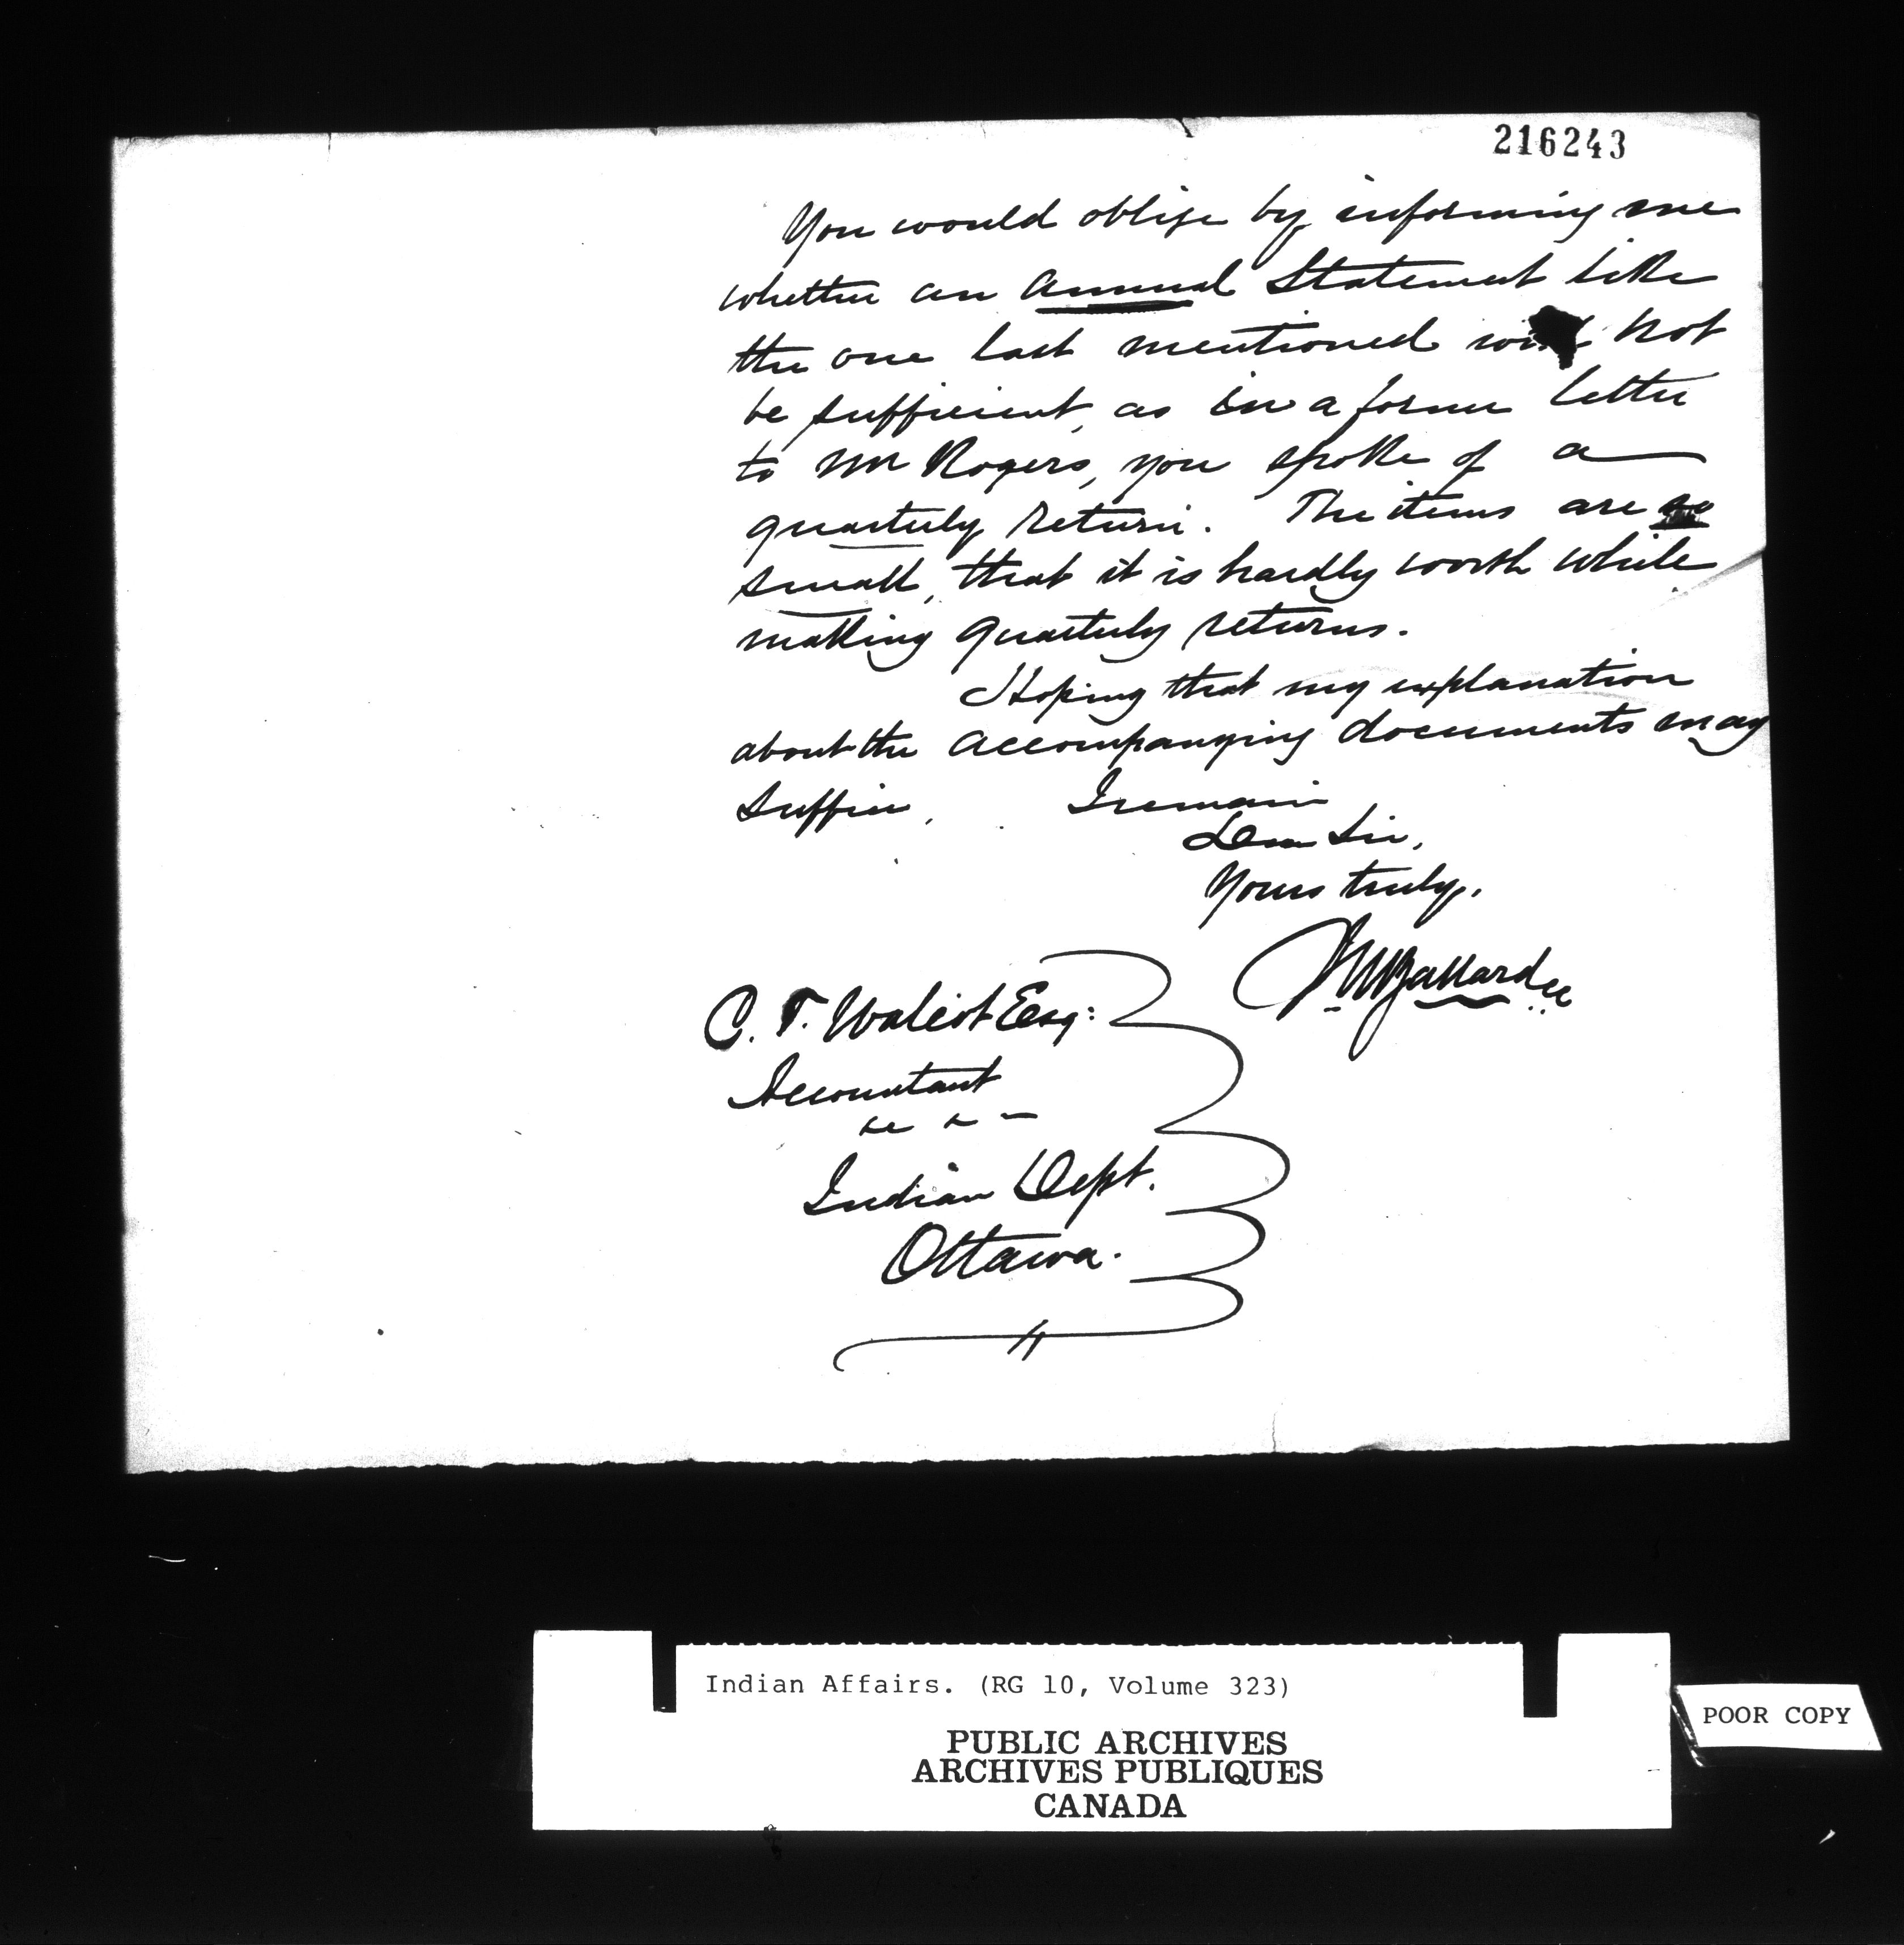 216243
You would oblige by informing me
whether an Annual Statement like
the one last mentioned will not
be sufficient, as in a former letter
to Mr Rogers, you spoke of a
quarterly return. The items are so
small, that it is hardly worth while
making quarterly returns.
Hoping that my explanation
about the accompanying documents may
suffice, I remain
Dear Sir,
Yours truly,
C. T. Walcot Esq:
Accountant
Indian Dept.
Ottawa.
Indian Affairs. (RG 10, Volume 323)
PUBLIC ARCHIVES
ARCHIVES PUBLIQUES
CANADA
POOR COPY